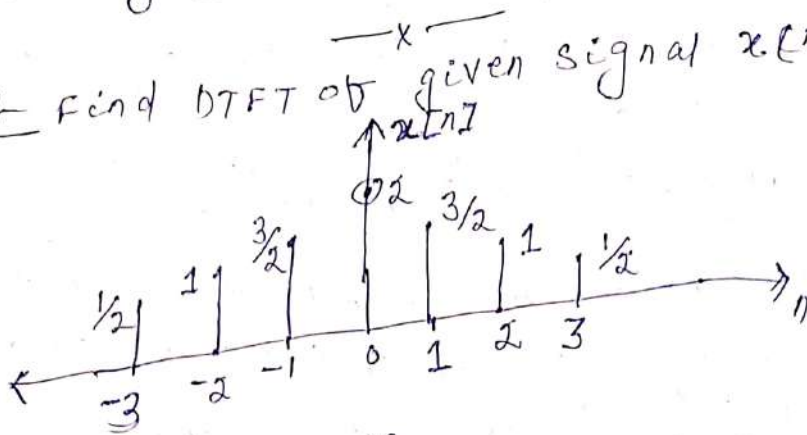 —x—
Find DTFT of given signal x[n
x[n]
2
3/2 3/2
1 1
1/2 1/2
-3 -2 -1 0 1 2 3 n